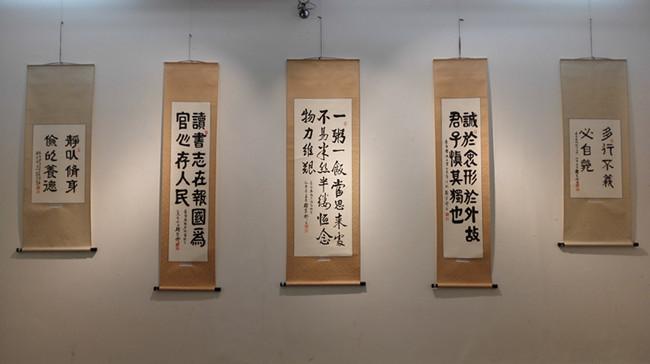 靜以脩身
儉以養德
讀書志在報國為
官心存人民
一粥一飯當思來處
不易半絲半縷恒念
物力維艱
誠於衷形於外故
君子慎其獨也
多行不義
必自斃